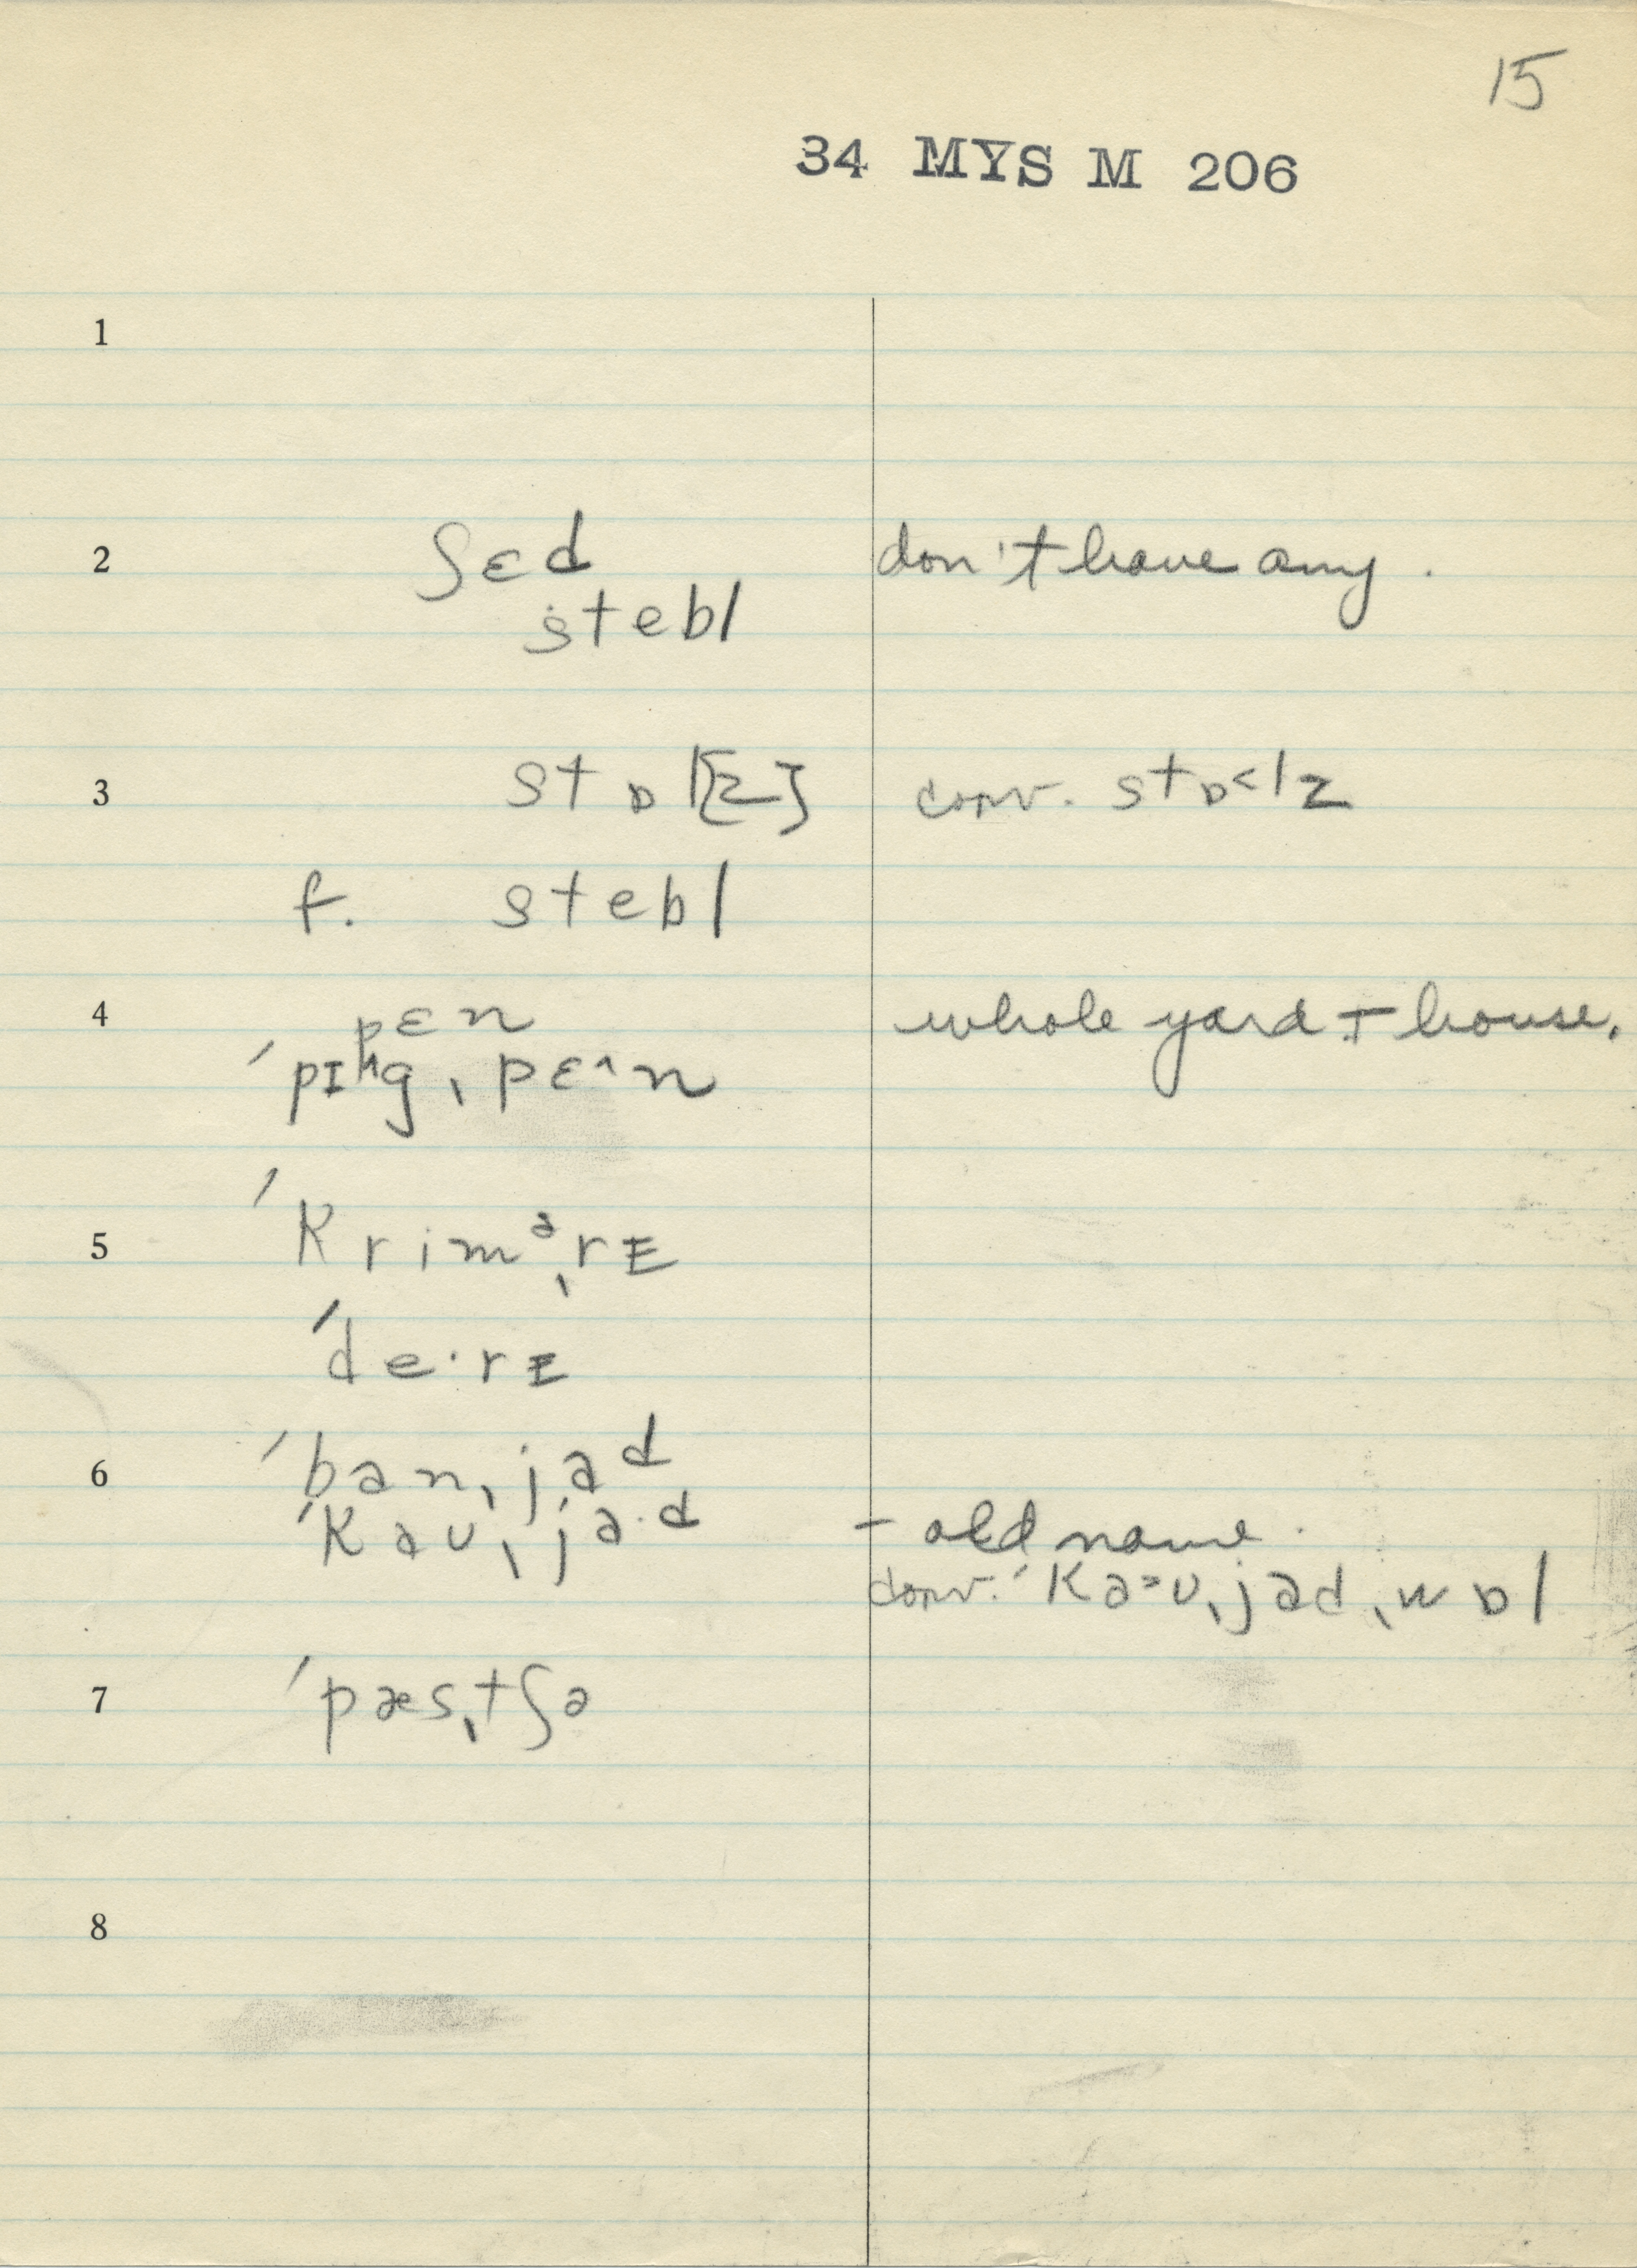 15
34 MYS M 206
1
2 ʃɛd don't have any.
stebl
3 stɒl[z] conv. stɒ˂lz
f. stebl
4 pɛn whole yard + house.
ˈpɪgˌpɛ^n
5 ˈkriməˌrɪ
ˈde·rɪ
6 ˈbanˌjad
ˈkaʊˌja·d – old name.
conv. ˈka˃ʊˌjadˌwɒl
7 ˈpæsˌtʃə
8